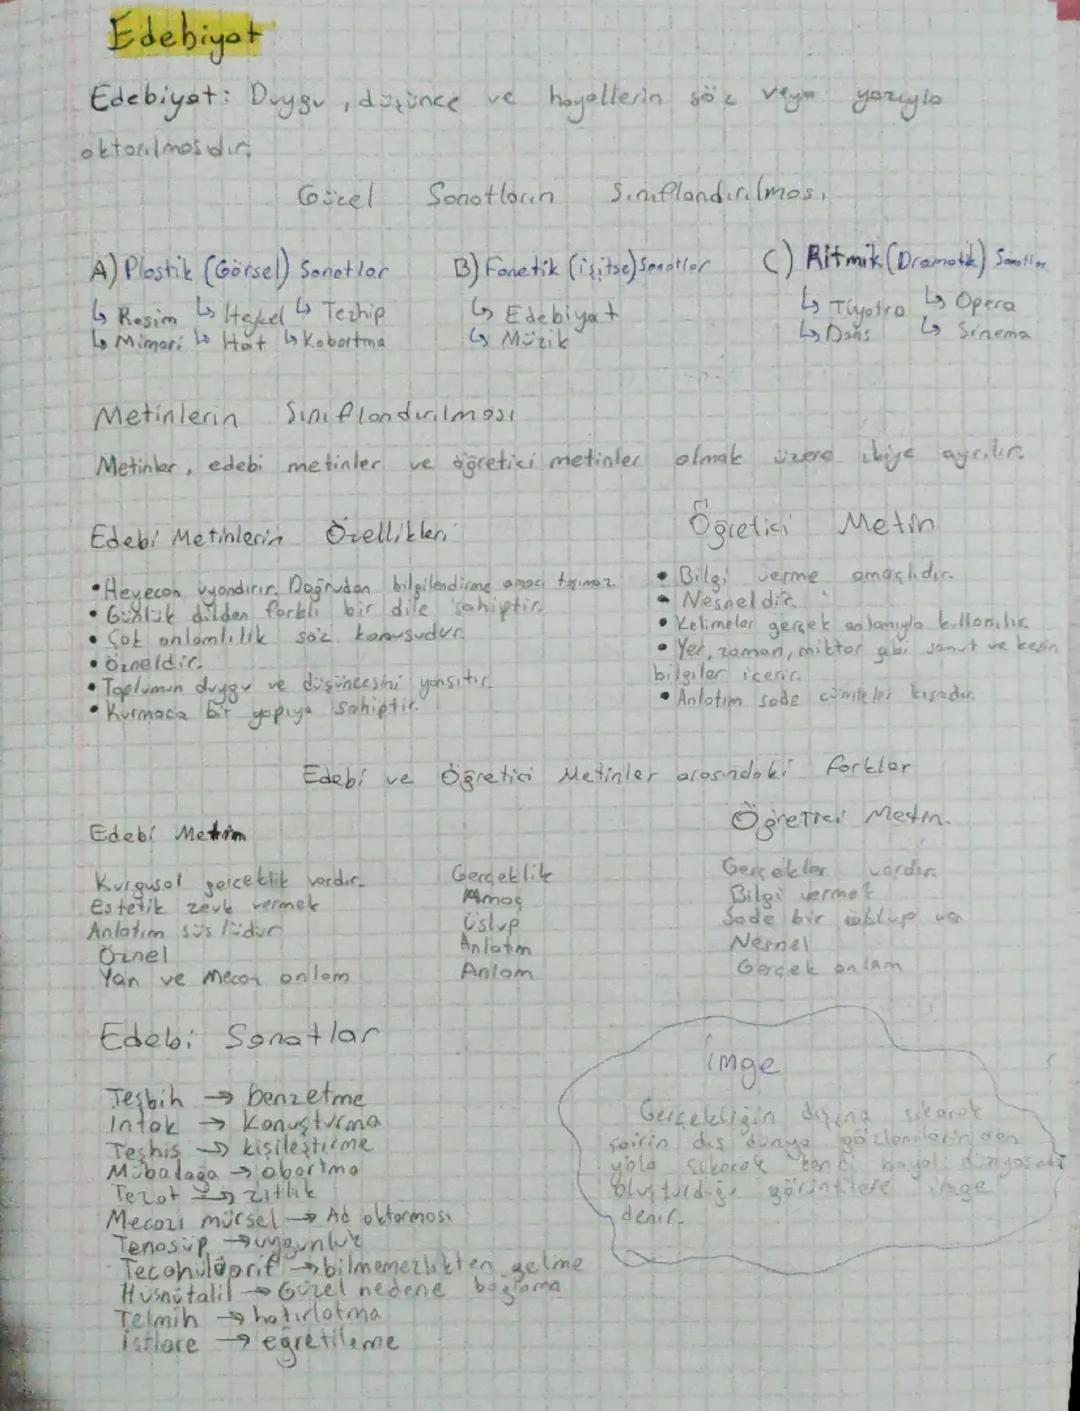 Edebiyat
Edebiyat: Duygu, düşünce ve hayallerin söz veya yazıyla
aktarılmasıdır.
Güzel Sanatların Sınıflandırılması
A) Plastik (Görsel) Sanatlar B) Fonetik (işitsel) Sanatlar C) Ritmik (Dramatik) Sanatlar
↳ Resim ↳ Heykel ↳ Tezhip ↳ Edebiyat ↳ Tiyatro ↳ Opera
↳ Mimari ↳ Hat ↳ Kabartma ↳ Müzik ↳ Dans ↳ Sinema
Metinlerin Sınıflandırılması
Metinler, edebi metinler ve öğretici metinler olmak üzere ikiye ayrılır.
Edebi Metinlerin Özellikleri
• Heyecan uyandırır. Doğrudan bilgilendirme amacı taşımaz
• Günlük dilden farklı bir dile sahiptir.
• Çok anlamlılık söz konusudur.
• Özneldir.
• Toplumun duygu ve düşüncesini yansıtır.
• Kurmaca bir yapıya sahiptir.
Öğretici Metin
• Bilgi verme amaçlıdır.
• Nesneldir.
• Kelimeler gerçek anlamıyla kullanılır.
• Yer, zaman, miktar gibi somut ve kesin
bilgiler içerir.
• Anlatım sade cümleler kısadır.
Edebi ve Öğretici Metinler arasındaki farklar
Edebi Metin Öğretici Metin
Kurgusal gerçeklik vardır. Gerçeklik Gerçekler vardır.
Estetik zevk vermek Amaç Bilgi vermek
Anlatım süslüdür Üslup Sade bir üslup var
Öznel Anlatım Nesnel
Yan ve Mecaz anlam Anlam Gerçek anlam
Edebi Sanatlar
Teşbih → benzetme
İntak → Konuşturma
Teşhis → kişileştirme
Mübalağa → abartma
Tezat → zıtlık
Mecazı mürsel → Ad aktarması
Tenasüp → uygunluk
Tecahülüarif → bilmemezlikten gelme
Hüsnütalil → Güzel nedene bağlama
Telmih → hatırlatma
İstiare → eğretileme
İmge
Gerçekliğin dışına çıkarak
şairin dış dünya gözlemlerinden
yola çıkarak kendi hayal dünyasında
oluşturduğu görüntülere imge
denir.